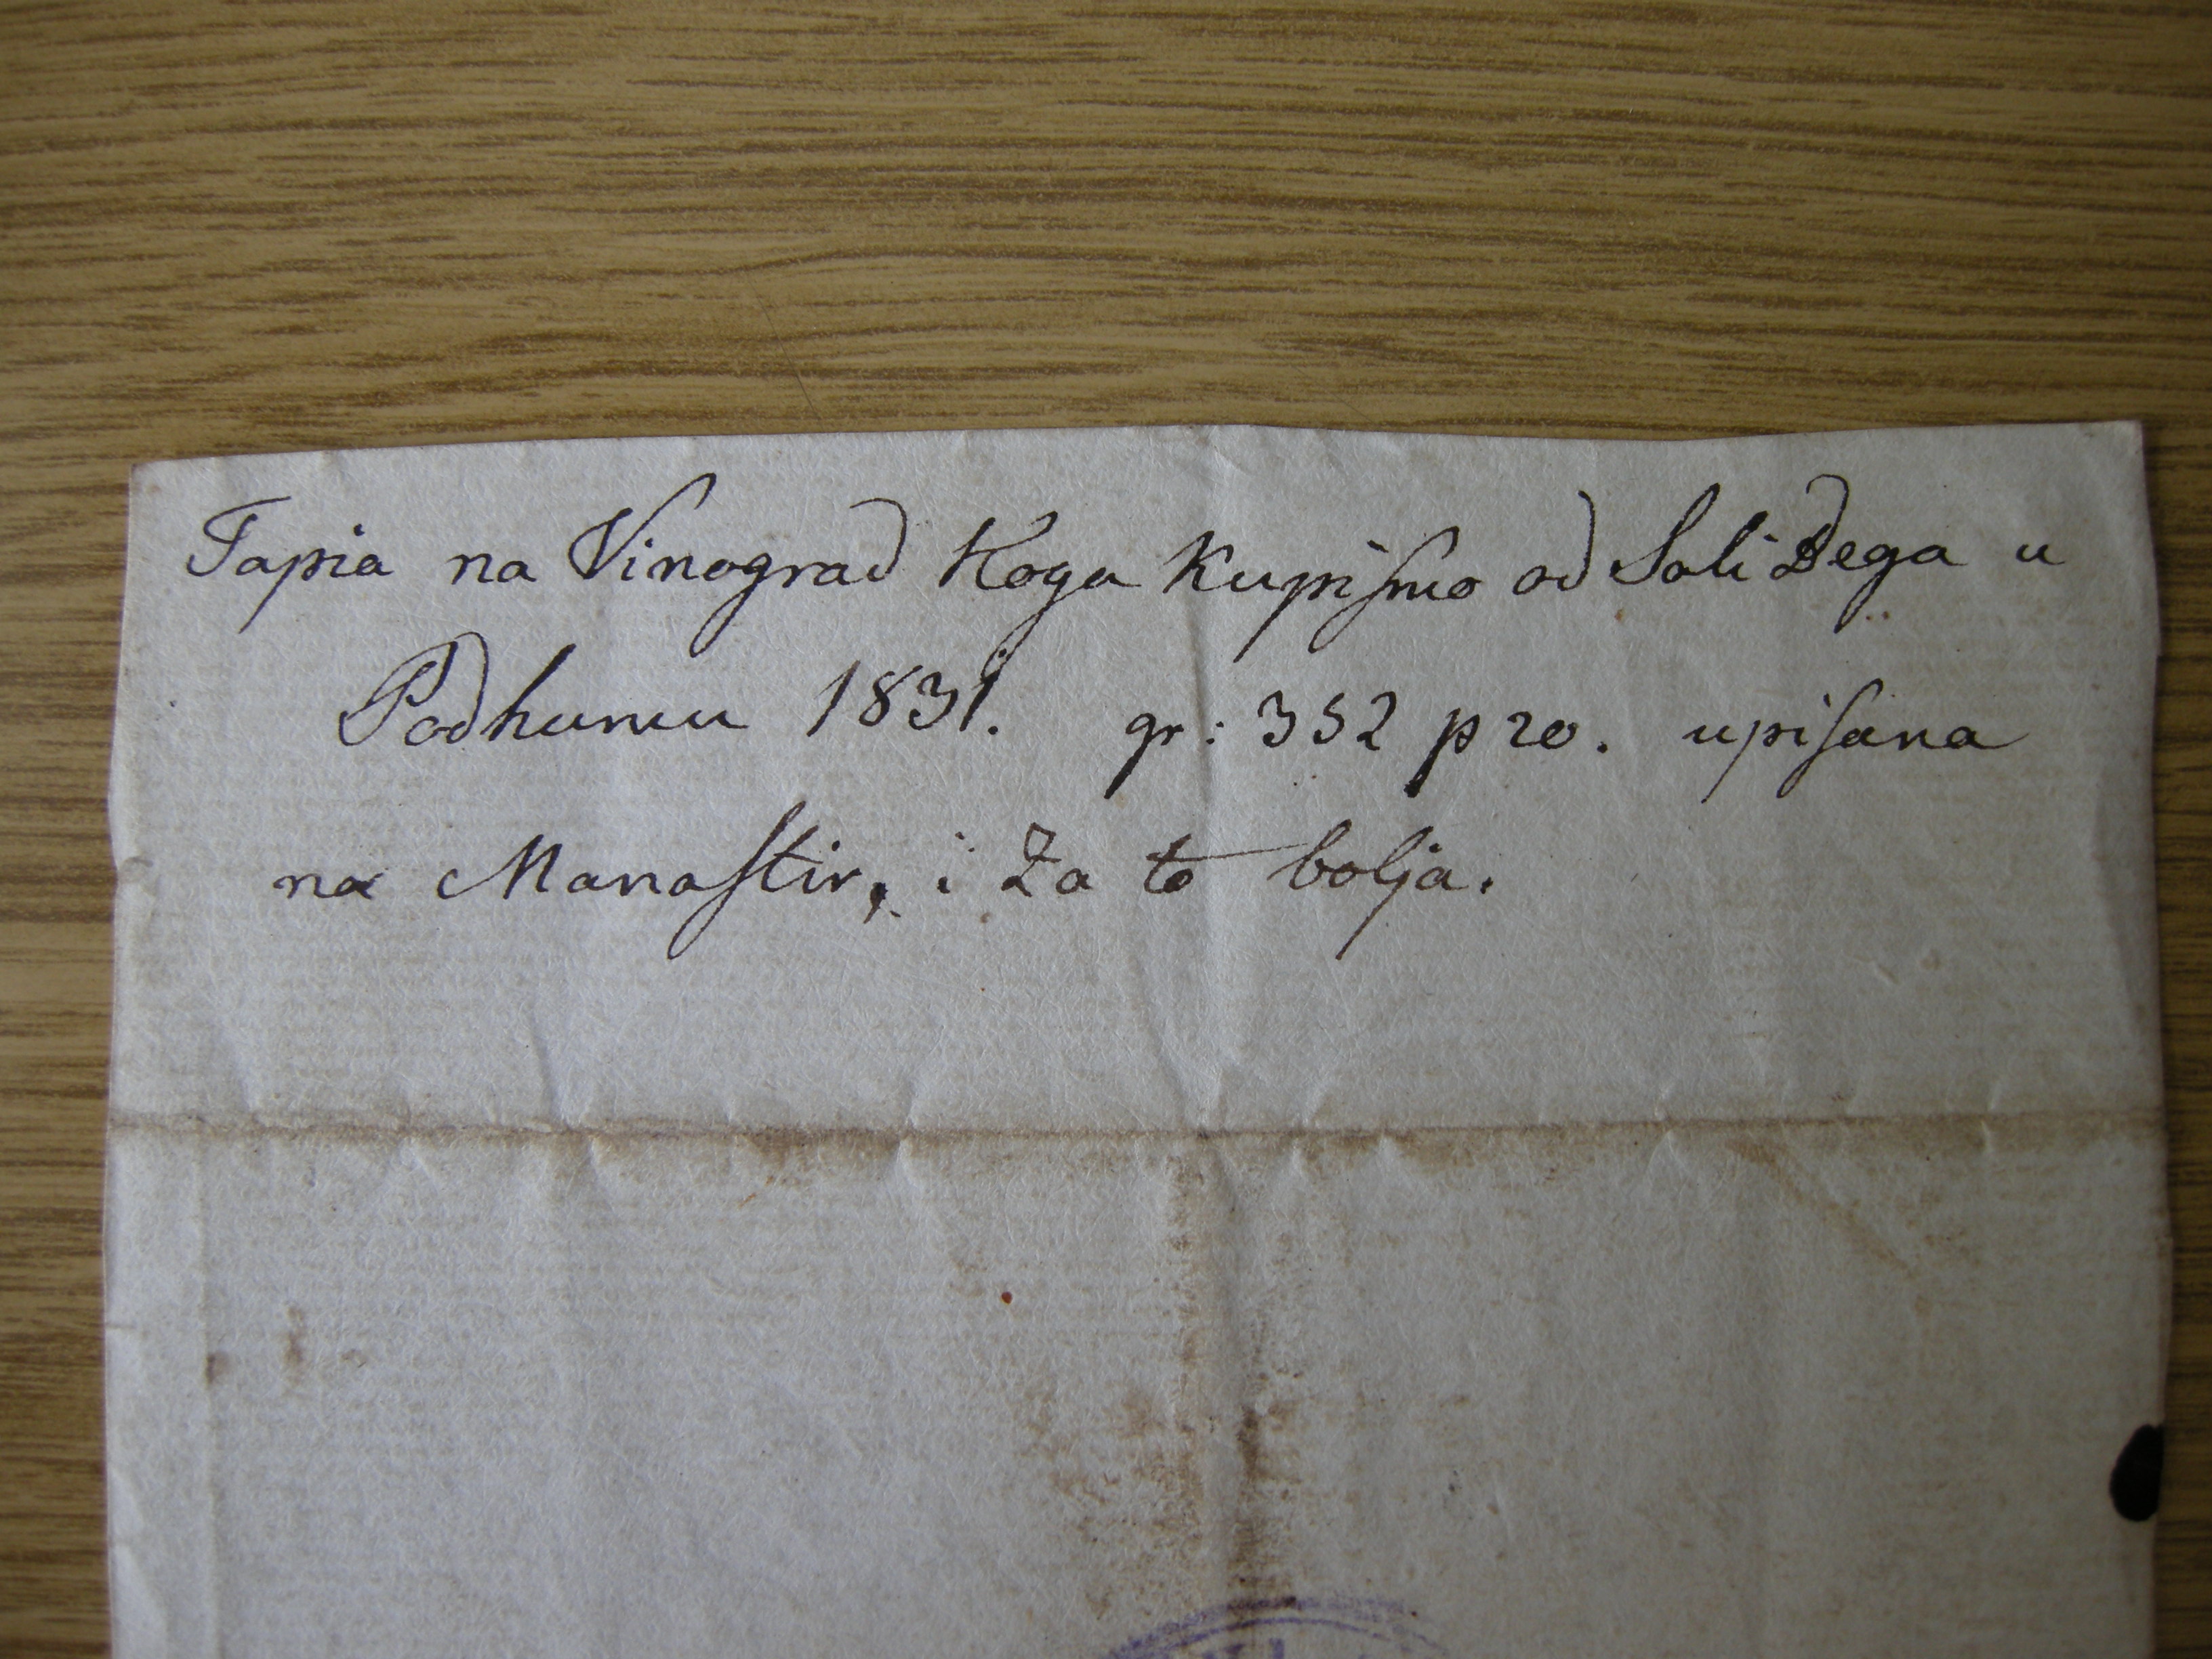 Tapia na Vinograd Koga Kupiſmo od Sali Bega u
Podhumu 1831. gr: 352 p 20. upiſana
na Manaſtir, i za to bolja.